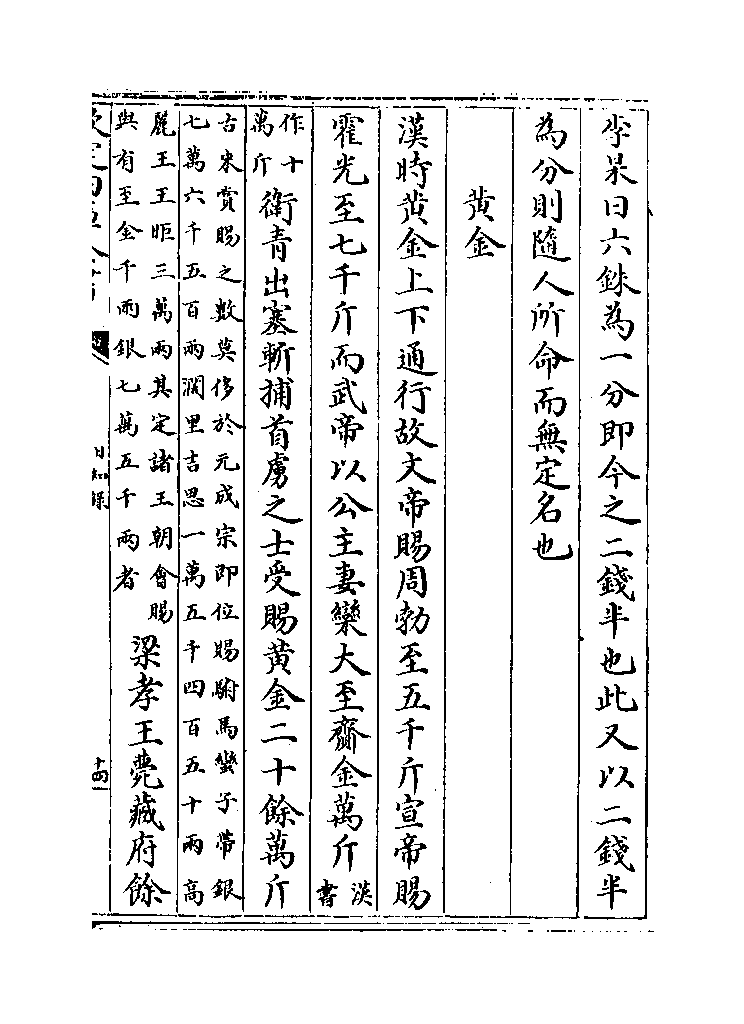 李杲曰六銖為一分即今之二錢半也此又以二錢半
為分則隨人所命而無定名也
黄金
漢時黄金上下通行故文帝賜周勃至五千斤宣帝賜
霍光至七千斤而武帝以公主妻欒大至齎金萬斤漢書
作十萬斤衛青出塞斬捕首虜之士受賜黄金二十餘萬斤
古來賞賜之數莫侈於元成宗即位賜駙馬蠻子帶銀
七萬六千五百兩濶里吉思一萬五千四百五十兩高
麗王王昛三萬兩其定諸王朝會賜
與有至金千兩銀七萬五千兩者
梁孝王薨藏府餘
日知録
十四